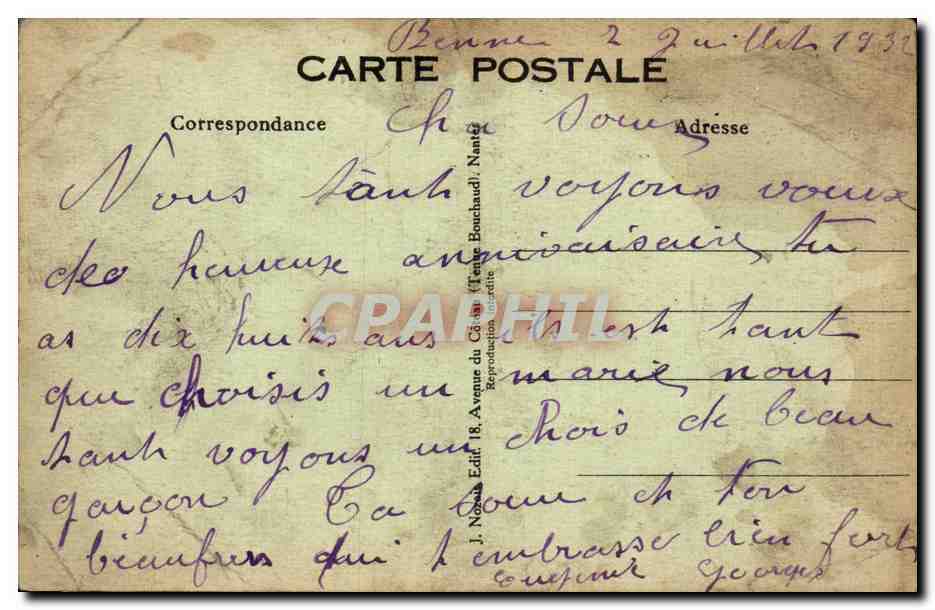 2 Juillet 1932
CARTE POSTALE
Correspondance
Adresse
Nous voyons voeux
deo heureuse annivaisaire tu
as dix huits ans ils est tant
que choisis un marie nous
voyons un chois de beau
garçon Ta soeur et ton
beaufrere qui t embrasse bien fort
Georges
J. Nozais Edit. 18, Avenue du Coteau (Tenue Bouchaud), Nantes
Reproduction interdite
CPAPHIL